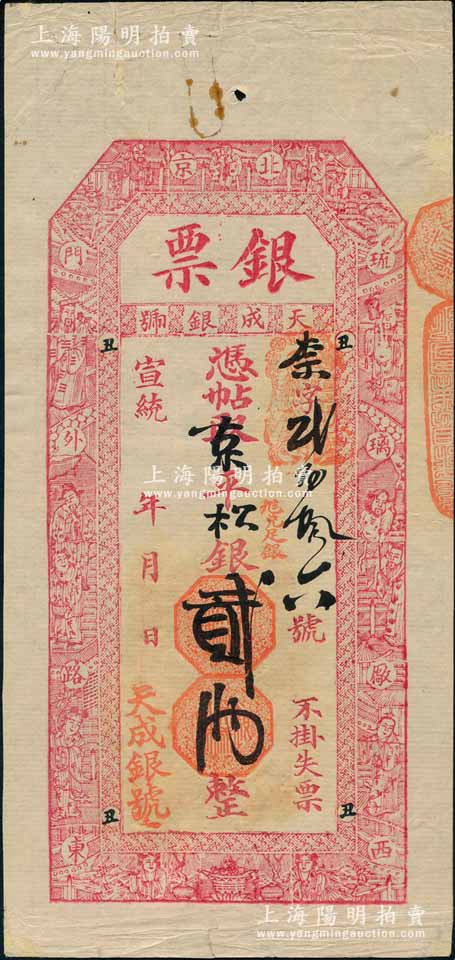 上海陽明拍賣
www.yangmingauction.com
北京
琉璃廠西
門外路東
銀票
天成銀號
丑
丑
字 六號
不掛失票
憑帖取京平松銀貳兩整
足銀
宣統 年 月 日
天成銀號
丑
丑
上海陽明拍賣
www.yangmingauction.com
上海陽明拍賣
www.yangmingauction.com